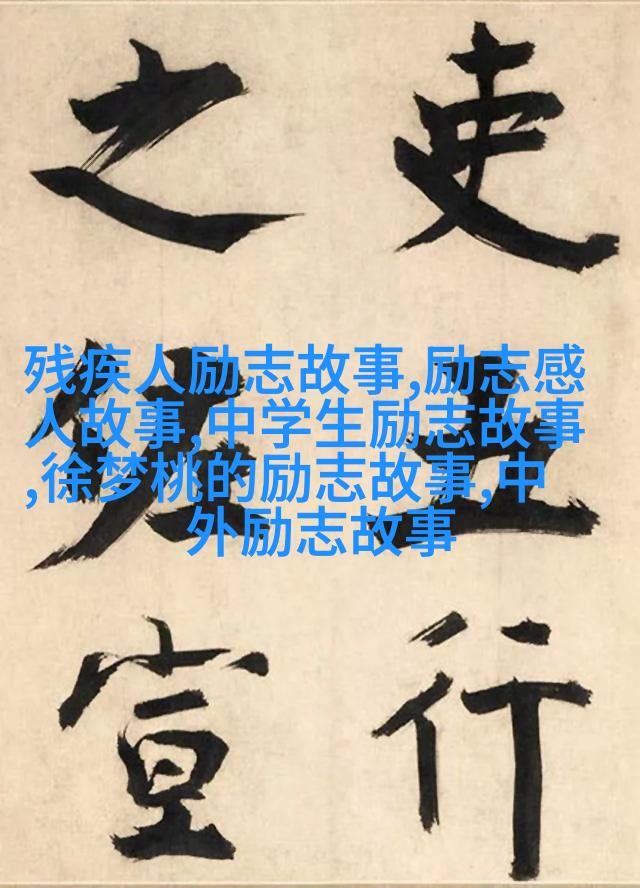 残疾人励志故事,励志感
人故事,中学生励志故事
,徐梦桃的励志故事,中
外励志故事
吏
行
之
宣